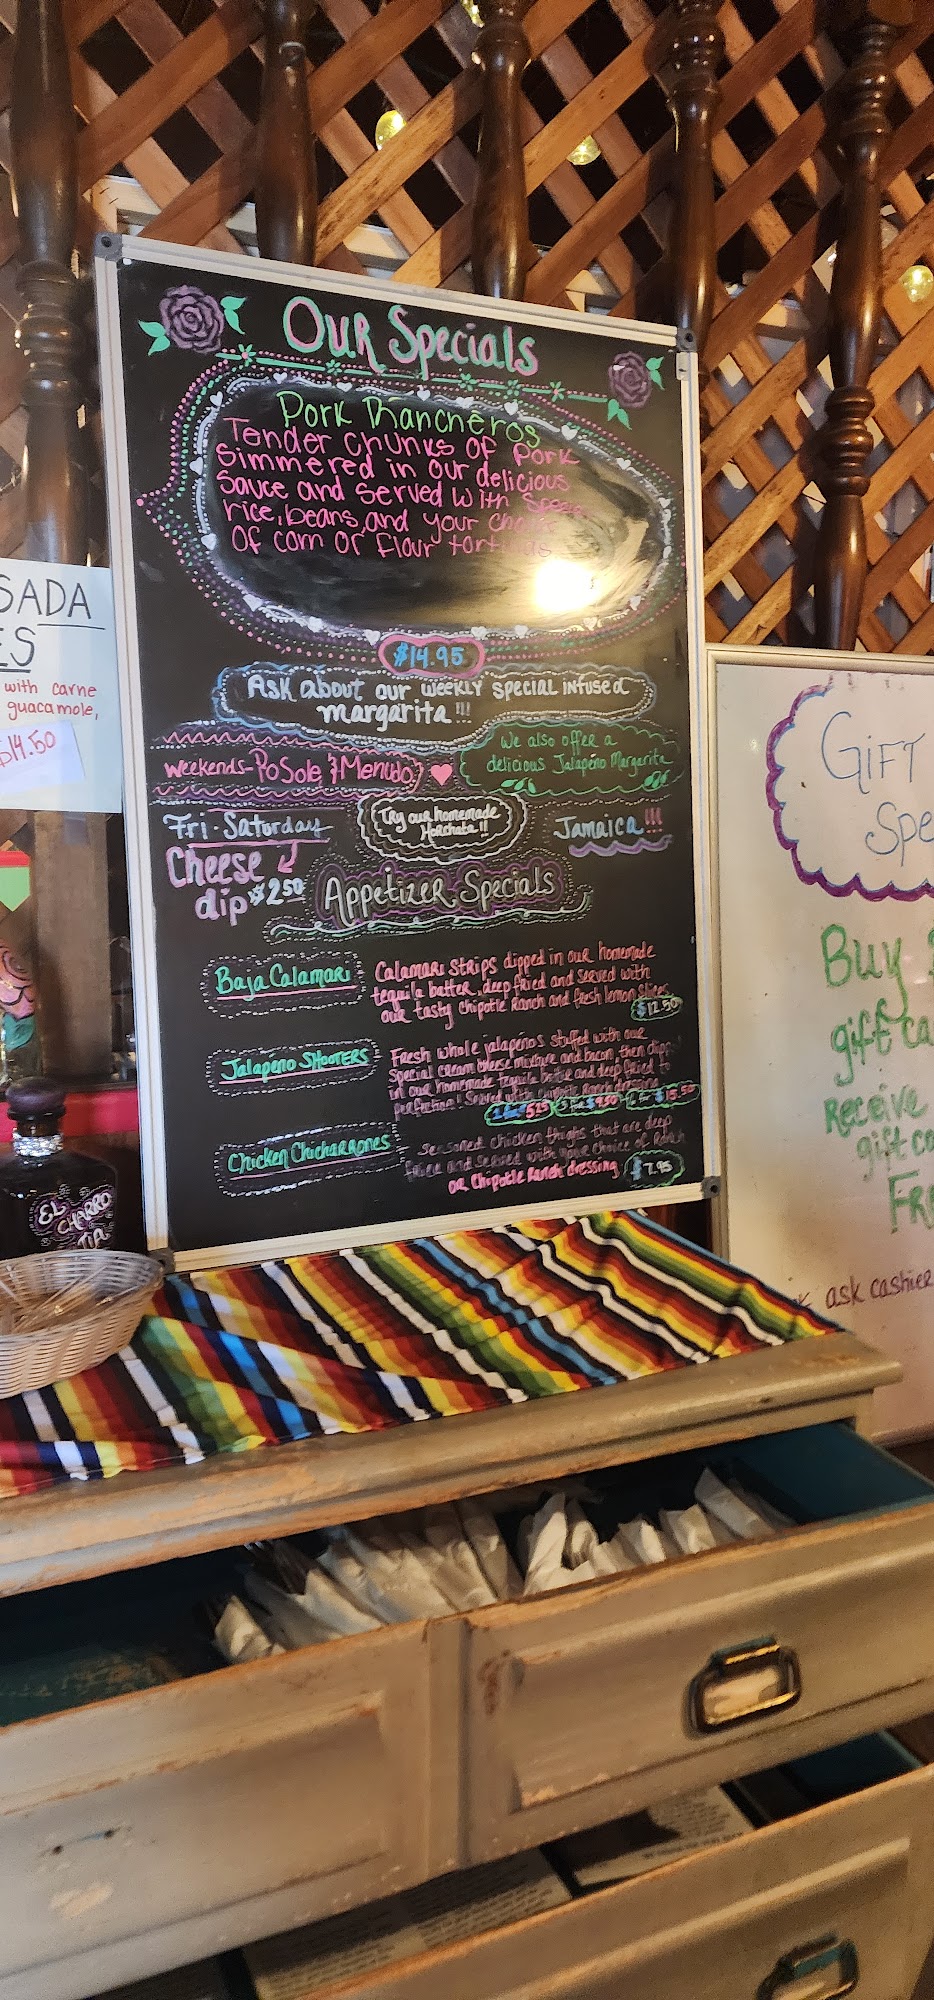 Our Specials
Pork Rancheros
Tender chunks of Pork
Simmered in our delicious
Sauce and served with
rice, beans, and your
of corn or flour tortillas
$14.95
Ask about our weekly special infused
margarita !!!
weekends - Posole & Menudo
We also offer a
delicious Jalapeño Margarita
Fri - Saturday
Cheese
dip $2.50
Try our homemade
Horchata !!
Jamaica !!!
Appetizer Specials
Baja Calamari
Calamari strips dipped in our homemade
tequila batter, deep fried and served with
our tasty Chipotle Ranch and fresh lemon slices
$12.50
Jalapeño Shooters
Fresh whole jalapeños stuffed with our
special cream cheese mixture and bacon, then
in our homemade tequila and deep fried to
perfection! Served with chipotle ranch dressing
Chicken Chicharrones
Seasoned chicken thighs that are deep
fried and served with your choice of Ranch
or Chipotle Ranch dressing
$7.95
SADA
ES
with carne
guacamole,
$14.50
EL
CHARRO
TIA
Gift
Spe
Buy
gift ca
Receive
gift ca
Fre
ask cashier